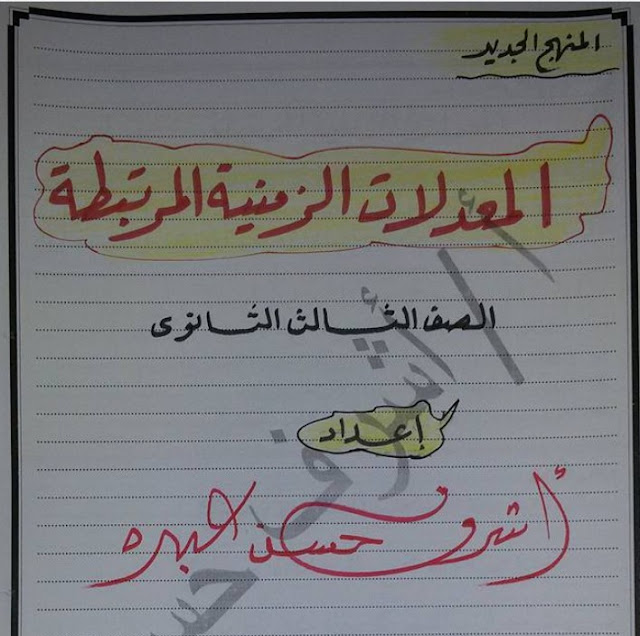 المنهج الجديد
المعدلات الزمنية المرتبطة
الصف الثالث الثانوى
إعداد
أشرف حسن